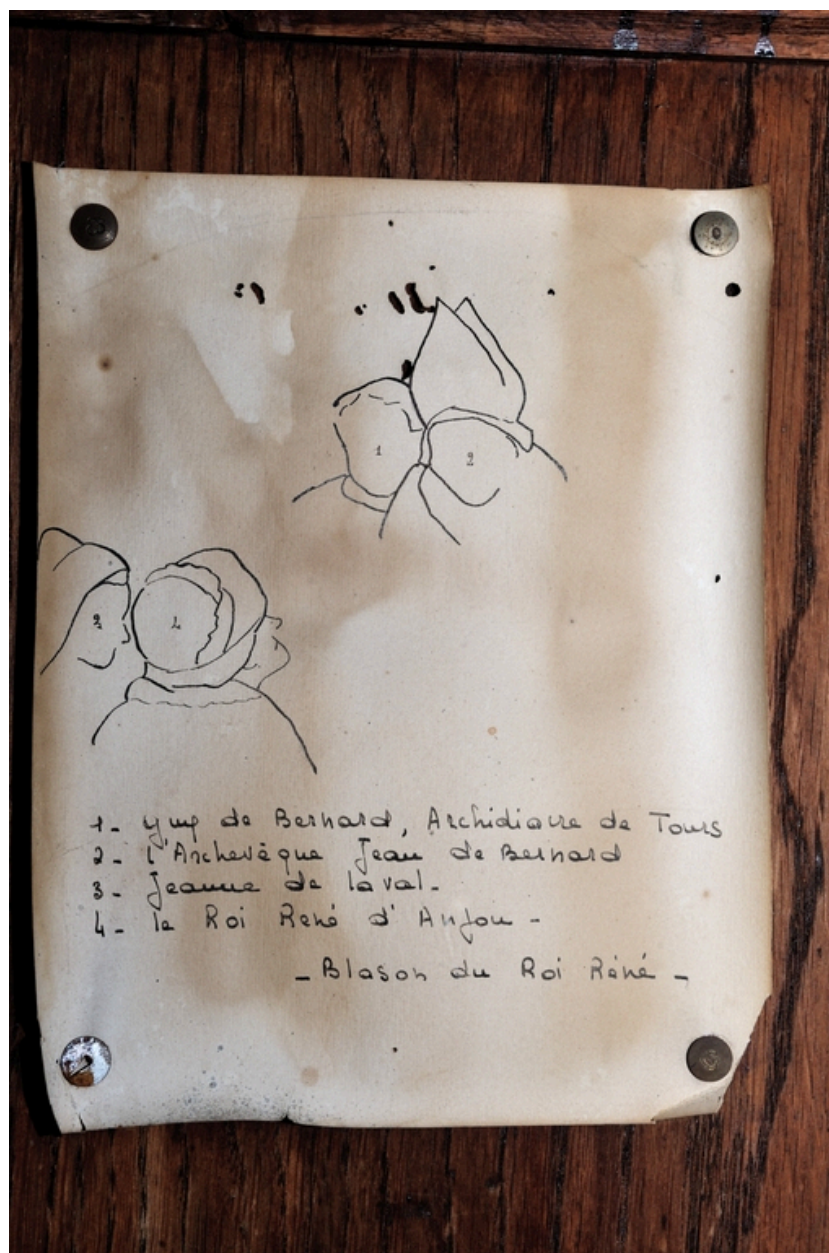 1 2
3 4
1- Guy de Bernard, Archidiacre de Tours
2- l'Archevêque Jean de Bernard
3- Jeanne de laval-
4- le Roi René d'Anjou -
- Blason du Roi Réné -